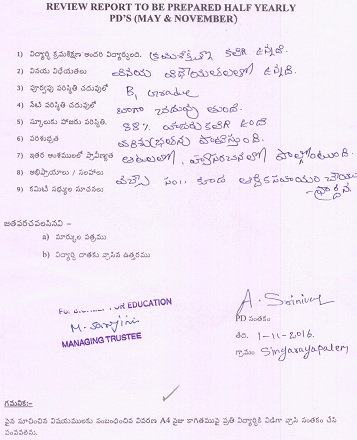 REVIEW REPORT TO BE PREPARED HALF YEARLY
PD'S (MAY & NOVEMBER)
1) విద్యార్థి క్రమశిక్షణ అందరి విద్యార్థులంది. క్రమశిక్షణ కలిగి ఉన్నది.
2) వినయ విధేయతలు వినయ విధేయతలతో ఉన్నది.
3) పూర్వపు పరిస్థితి చదువులో B1 Gradue
4) నేటి పరిస్థితి చదువులో బాగా చదువు తుంది.
5) స్కూలుకు హాజరు పరిస్థితి. 88% హాజరు కలిగి ఉంది
6) పరిశుభ్రత పరిశుభ్రతను పాటిస్తుంది.
7) ఇతర అంశములలో ప్రావీణ్యత ఆటలలో, పాల్గొంటుంది.
8) అభిప్రాయాలు / సలహాలు వచ్చే సం॥ కూడ ఆర్థిక సహాయం చేయు
9) కమిటీ సభ్యుల సూచనలు ప్రార్థన.
జతపరచవలసినవి –
a) మార్కుల పత్రము
b) విద్యార్థి దాతకు వ్రాసిన ఉత్తరము
FOR EDUCATION
M. Sanjini
MANAGING TRUSTEE
A. Srinivas
PD సంతకం
తేది. 1-11-2016
గ్రామం Singarayapalem
గమనిక:-
పైన సూచించిన విషయములకు సంబంధించిన వివరణ A4 సైజు కాగితముపై ప్రతి విద్యార్థికి విడిగా వ్రాసి సంతకం చేసి
పంపవలెను.